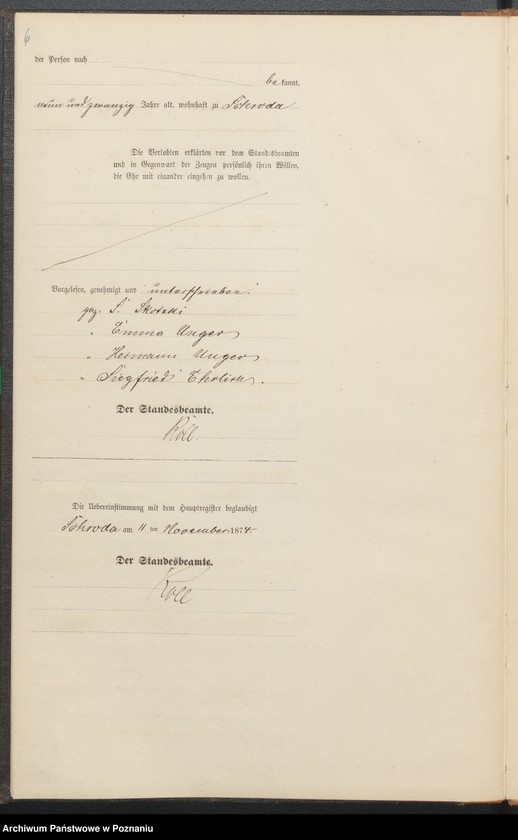 6
der Person nach
be kannt,
neun und zwanzig Jahre alt, wohnhaft zu Schroda
Die Verlobten erklärten vor dem Standesbeamten
und in Gegenwart der Zeugen persönlich ihren Willen,
die Ehe mit einander eingehen zu wollen.
Vorgelesen, genehmigt und unterschrieben:
gez. S. Skotzki
" Emma Unger
" Hermann Unger
" Siegfried Ehrlich.
Der Standesbeamte.
Koll
Die Uebereinstimmung mit dem Hauptregister beglaubigt
Schroda am 11 ten November 1874
Der Standesbeamte.
Koll
Archiwum Państwowe w Poznaniu